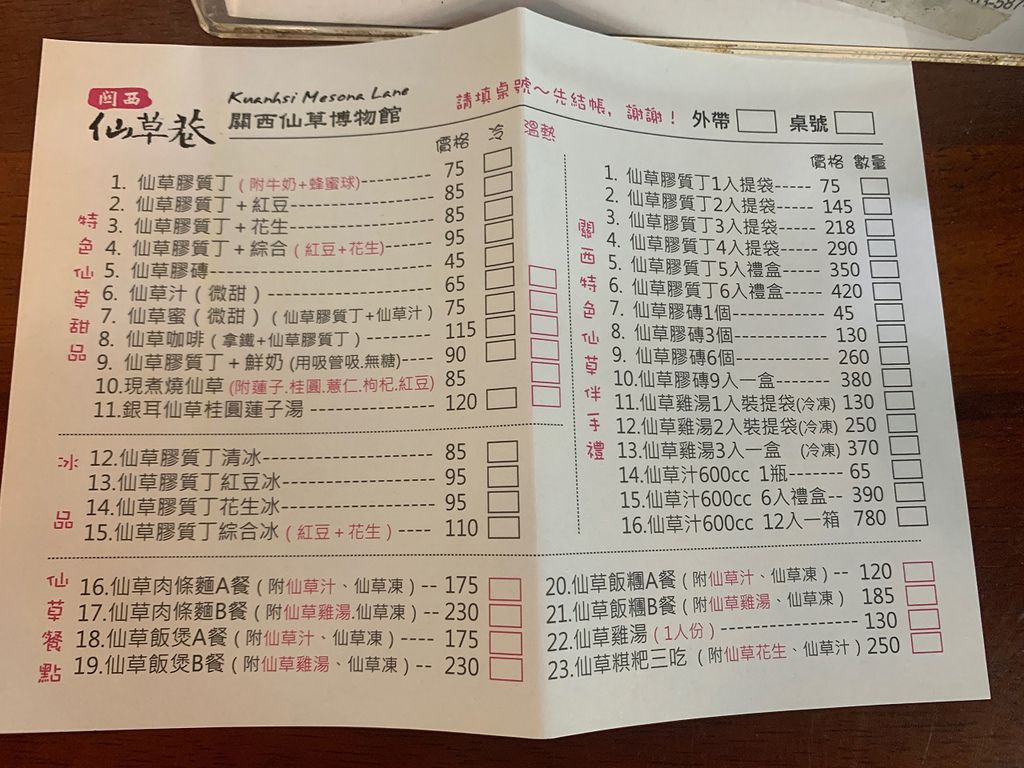 關西
仙草巷
Kuanhsi Mesona Lane
關西仙草博物館
請填桌號～先結帳, 謝謝！
外帶
桌號
價格 冷 溫熱
特色仙草甜品
1. 仙草膠質丁(附牛奶+蜂蜜球)---------- 75
2. 仙草膠質丁+紅豆-------------------- 85
3. 仙草膠質丁+花生-------------------- 85
4. 仙草膠質丁+綜合(紅豆+花生)------- 95
5. 仙草膠磚------------------------------ 45
6. 仙草汁(微甜)----------------------- 65
7. 仙草蜜(微甜)(仙草膠質丁+仙草汁) 75
8. 仙草咖啡(拿鐵+仙草膠質丁)-------- 115
9. 仙草膠質丁+鮮奶(用吸管吸.無糖)---- 90
10.現煮燒仙草(附蓮子.桂圓.薏仁.枸杞.紅豆) 85
11.銀耳仙草桂圓蓮子湯 ---------------- 120
冰品
12.仙草膠質丁清冰--------------------- 85
13.仙草膠質丁紅豆冰------------------- 95
14.仙草膠質丁花生冰------------------- 95
15.仙草膠質丁綜合冰(紅豆+花生)---- 110
價格 數量
關西特色仙草伴手禮
1. 仙草膠質丁1入提袋----- 75
2. 仙草膠質丁2入提袋----- 145
3. 仙草膠質丁3入提袋----- 218
4. 仙草膠質丁4入提袋----- 290
5. 仙草膠質丁5入禮盒----- 350
6. 仙草膠質丁6入禮盒----- 420
7. 仙草膠磚1個------------- 45
8. 仙草膠磚3個------------- 130
9. 仙草膠磚6個------------- 260
10.仙草膠磚9入一盒-------- 380
11.仙草雞湯1入裝提袋(冷凍) 130
12.仙草雞湯2入裝提袋(冷凍) 250
13.仙草雞湯3入一盒 (冷凍) 370
14.仙草汁600cc 1瓶-------- 65
15.仙草汁600cc 6入禮盒-- 390
16.仙草汁600cc 12入一箱 780
仙草餐點
16.仙草肉條麵A餐(附仙草汁、仙草凍)-- 175
17.仙草肉條麵B餐(附仙草雞湯.仙草凍)-- 230
18.仙草飯煲A餐(附仙草汁、仙草凍)---- 175
19.仙草飯煲B餐(附仙草雞湯、仙草凍)-- 230
20.仙草飯糰A餐(附仙草汁、仙草凍)-- 120
21.仙草飯糰B餐(附仙草雞湯、仙草凍) 185
22.仙草雞湯(1人份)------------------- 130
23.仙草粸粑三吃(附仙草花生、仙草汁) 250